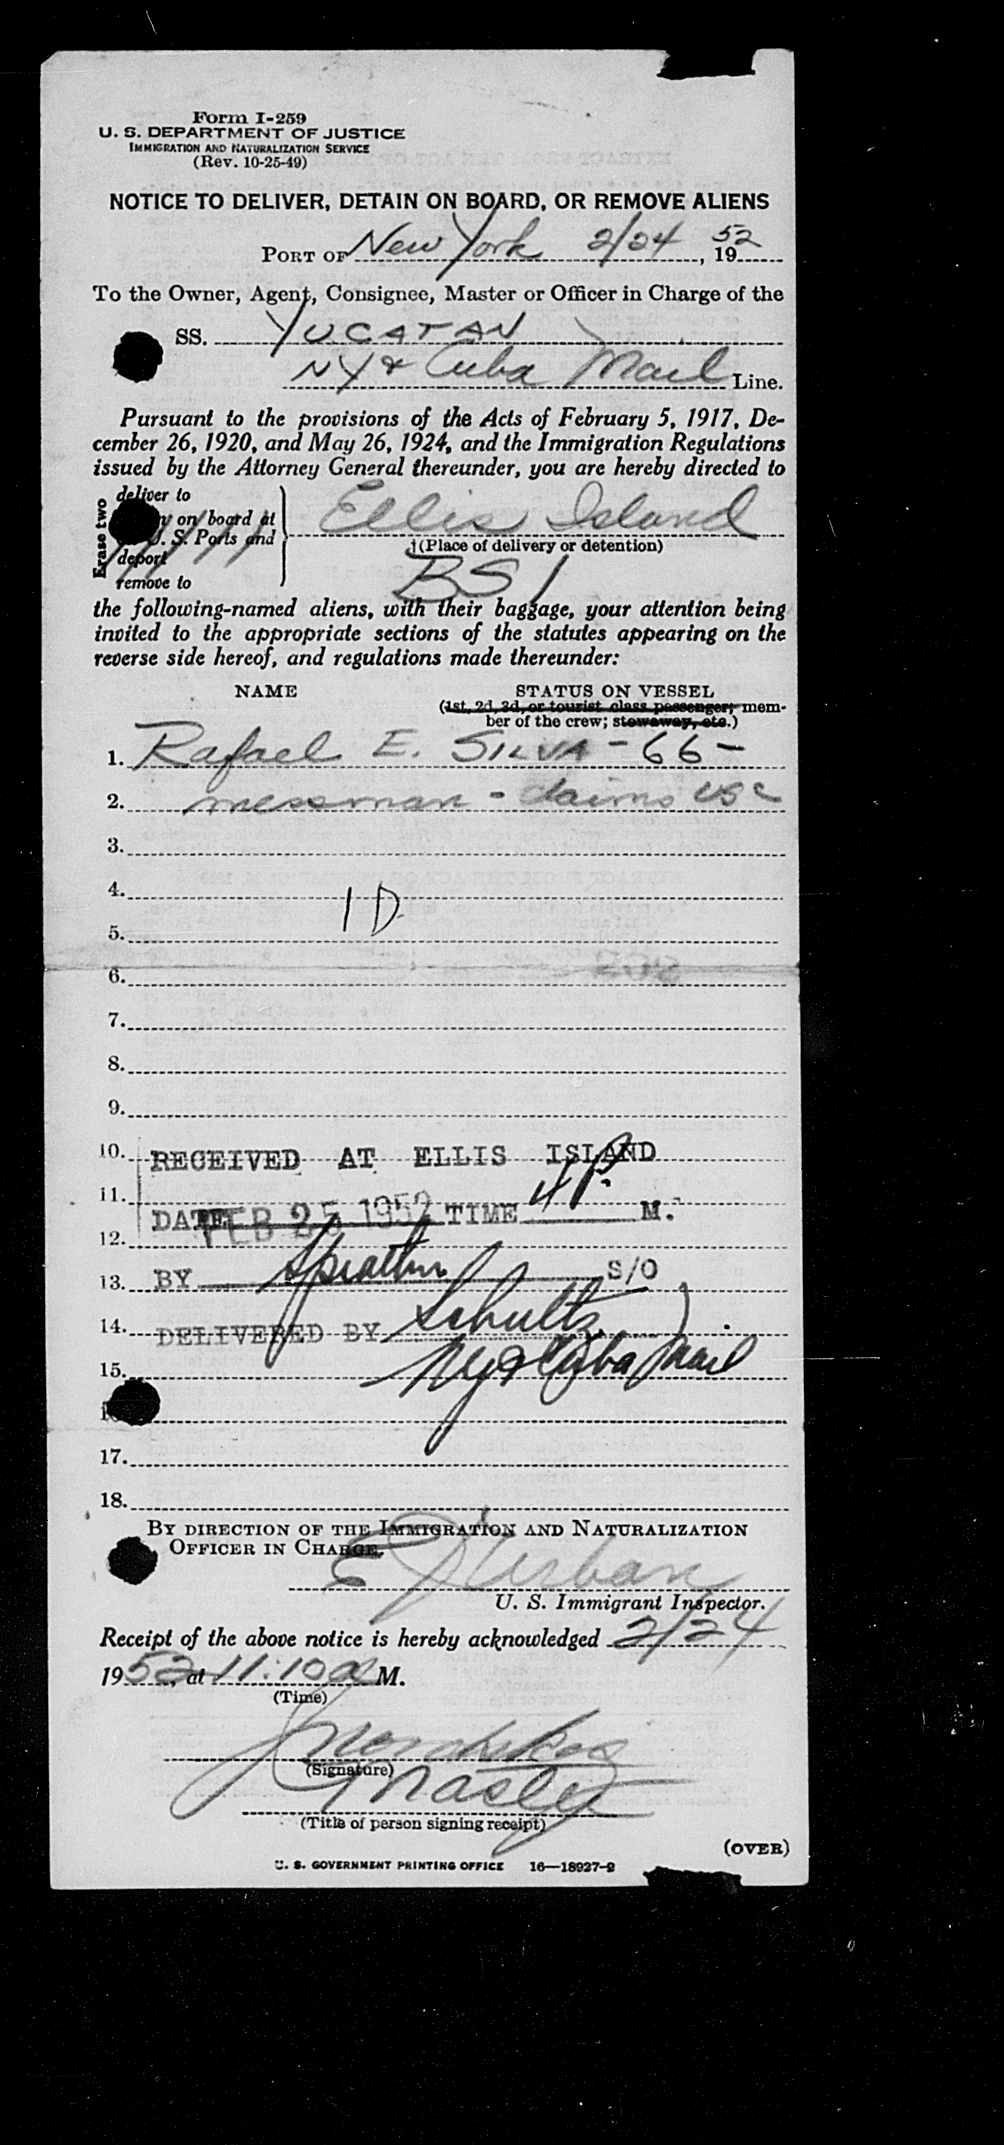 Form I-259
U. S. DEPARTMENT OF JUSTICE
IMMIGRATION AND NATURALIZATION SERVICE
(Rev. 10-25-49)
NOTICE TO DELIVER, DETAIN ON BOARD, OR REMOVE ALIENS
PORT OF New York 2/24, 1952
To the Owner, Agent, Consignee, Master or Officer in Charge of the
SS. YUCATAN
NY & Cuba Mail Line.
Pursuant to the provisions of the Acts of February 5, 1917, De-
cember 26, 1920, and May 26, 1924, and the Immigration Regulations
issued by the Attorney General thereunder, you are hereby directed to
Erase two
deliver to
on board at
U. S. Ports and
deport
remove to
Ellis Island
(Place of delivery or detention)
BSI
the following-named aliens, with their baggage, your attention being
invited to the appropriate sections of the statutes appearing on the
reverse side hereof, and regulations made thereunder:
NAME STATUS ON VESSEL
(1st, 2d, 3d, or tourist class passenger; mem-
ber of the crew; stowaway, etc.)
1. Rafael E. SILVA - 66 -
2. messman - claims USC
3.
4.
1 D
5.
6.
7.
8.
9.
10. RECEIVED AT ELLIS ISLAND
11. DATE FEB 25 1952 TIME 4 P. M.
12.
13. BY S/O
14. DELIVERED BY Schultz
15. NY & Cuba Mail
16.
17.
18.
BY DIRECTION OF THE IMMIGRATION AND NATURALIZATION
OFFICER IN CHARGE.
E J Urban
U. S. Immigrant Inspector.
Receipt of the above notice is hereby acknowledged 2/24
1952, at 11:10 a M.
(Time)
(Signature)
Master
(Title of person signing receipt)
(OVER)
U. S. GOVERNMENT PRINTING OFFICE 16—18927-2